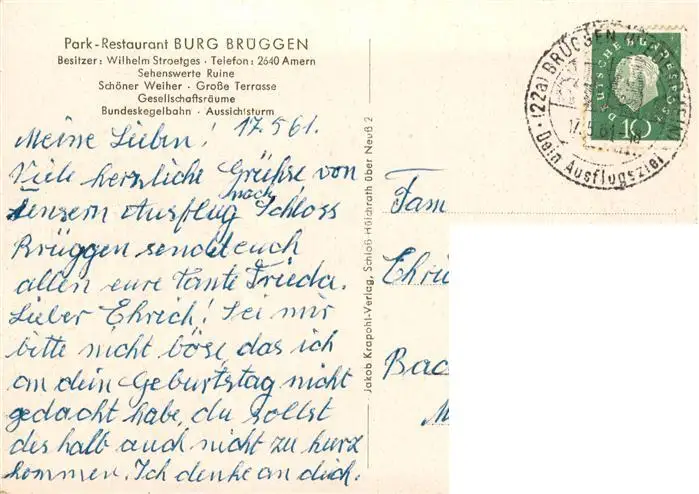 Park-Restaurant BURG BRÜGGEN
Besitzer: Wilhelm Stroetges · Telefon: 2640 Amern
Sehenswerte Ruine
Schöner Weiher · Große Terrasse
Gesellschaftsräume
Bundeskegelbahn · Aussichtsturm
Meine Lieben! 17.5.61.
Viele herzliche Grüße von
unserm Ausflug nach Schloss
Brüggen sendet euch
allen eure Tante Frieda.
Lieber Ehrich! Sei mir
bitte nicht böse, das ich
an dein Geburtstag nicht
gedacht habe, du sollst
des halb auch nicht zu kurz
kommen. Ich denke an dich.
Jakob Krapohl-Verlag, Schloß Hülchrath über Neuß 2
Fam
Ehri
Bad
(22a) BRÜGGEN
17.5.61
Dein Ausflugsziel
DEUTSCHE BUNDESPOST
10